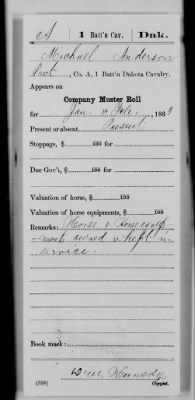 A | 1 Batt'n Cav. | Dak.
Michael Anderson
Pvt., Co. A, 1 Batt'n Dakota Cavalry.
Appears on
Company Muster Roll
for Jan & Feb, 1863
Present or absent Present
Stoppage, $ 100 for
Due Gov't, $ 100 for
Valuation of horse, $ 100
Valuation of horse equipments, $ 100
Remarks: Horse & Horse equip
ments owned & kept in
service.
Book mark:
(358) Copyist.